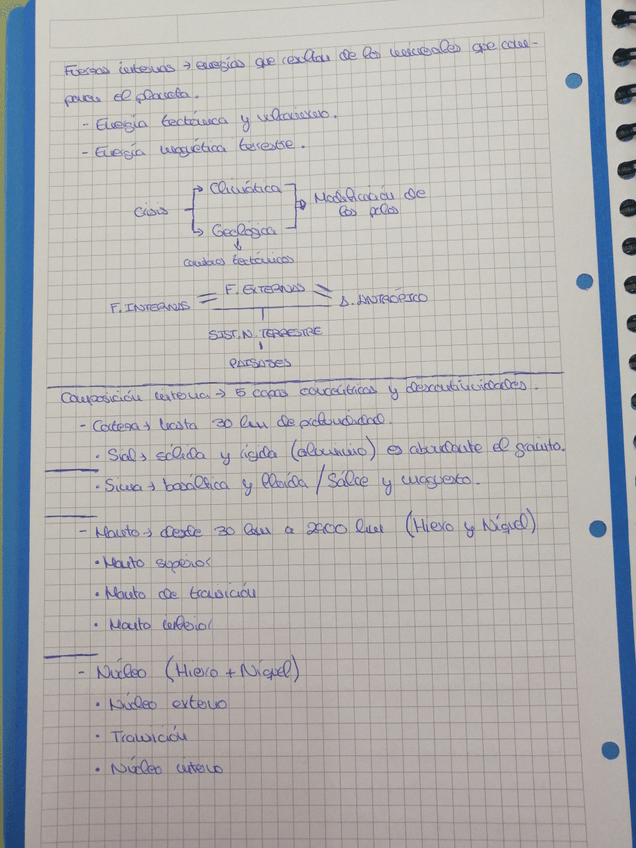 Fuerzas internas → energías que resultan de los materiales que com-
ponen el planeta.
- Energía tectónica y volcanismo.
- Energía magnética terrestre.
Crisis
Climática
Geológica
Modificación de
los polos
cambios tectónicos
F. INTERNAS = F. EXTERNAS = A. ANTRÓPICO
SIST. N. TERRESTRE
PAISAJES
Composición interna → 5 capas concéntricas y descontinuidades.
- Corteza → hasta 30 km de profundidad.
• Sial → sólida y rígida (aluminio) es abundante el granito.
• Sima → basáltica y fluida / Sílice y magnesio.
- Manto → desde 30 km a 2900 km (Hierro y Níquel)
• Manto superior
• Manto de transición
• Manto inferior
- Núcleo (Hierro + Níquel)
• Núcleo externo
• Transición
• Núcleo interno